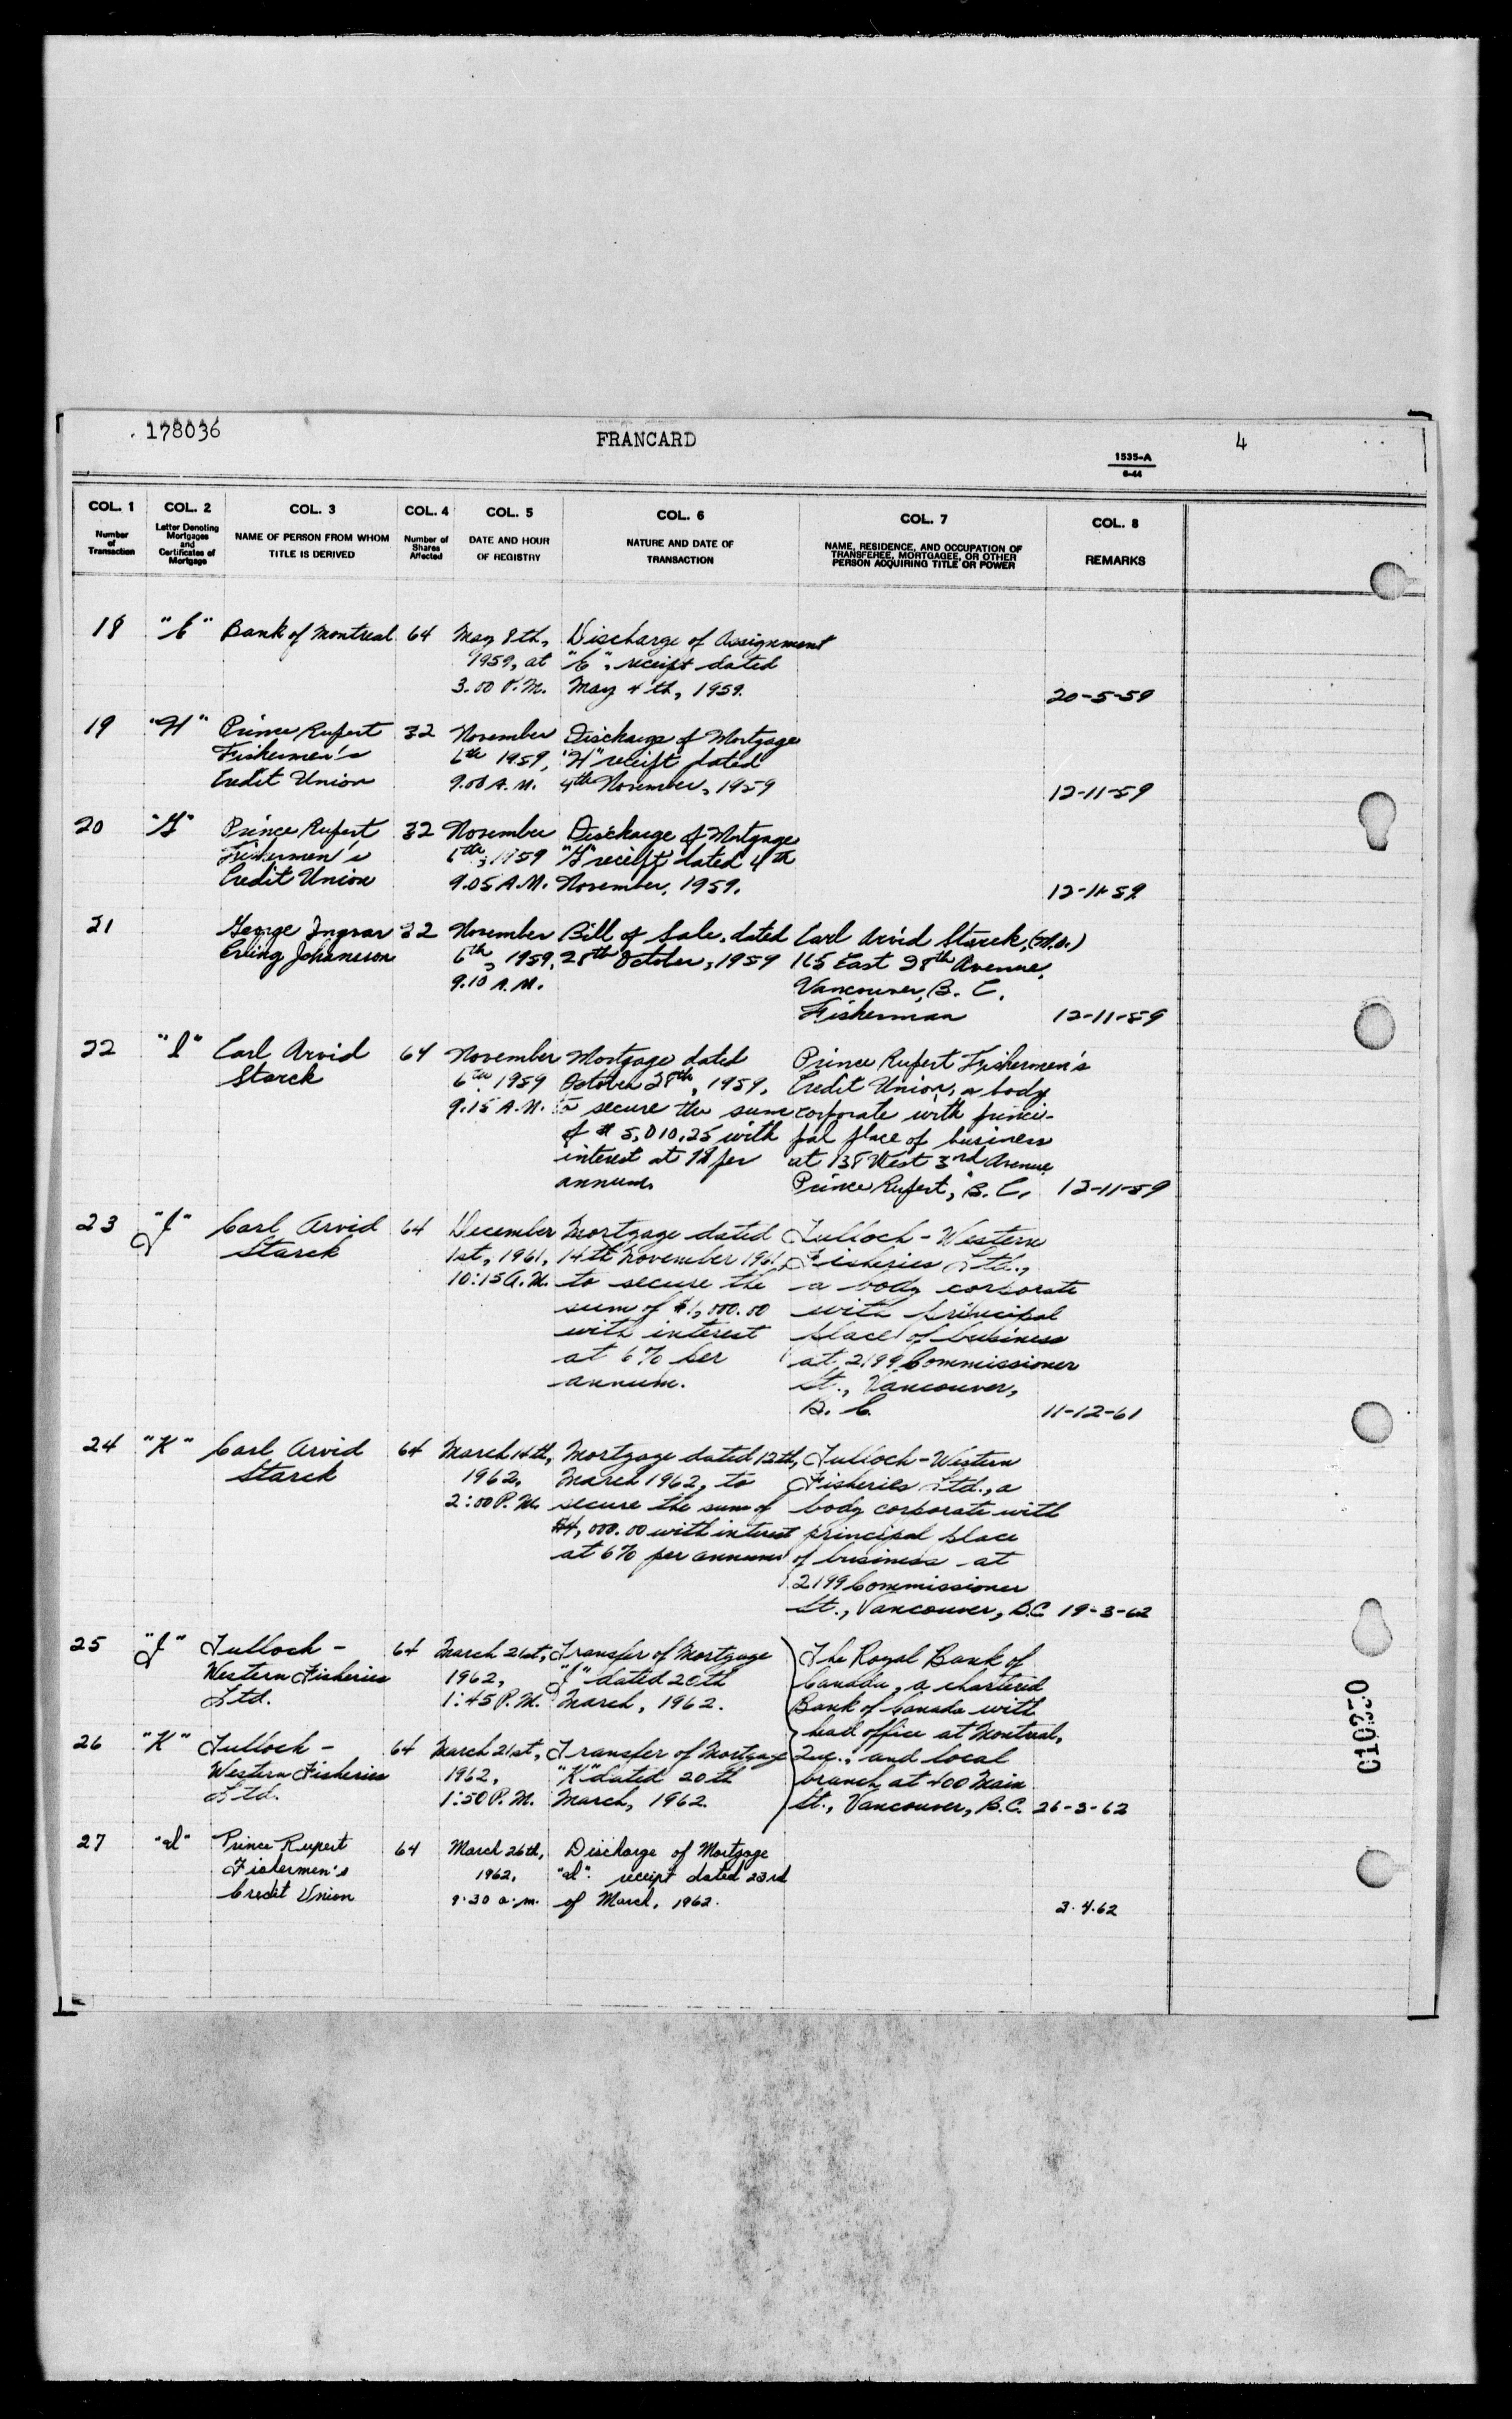 178036 FRANCARD 4
1535-A
6-44
COL. 1 COL. 2 COL. 3 COL. 4 COL. 5 COL. 6 COL. 7 COL. 8
Number of Transaction
Letter Denoting Mortgages and Certificates of Mortgage
NAME OF PERSON FROM WHOM TITLE IS DERIVED
Number of Shares Affected
DATE AND HOUR OF REGISTRY
NATURE AND DATE OF TRANSACTION
NAME, RESIDENCE, AND OCCUPATION OF TRANSFEREE, MORTGAGEE, OR OTHER PERSON ACQUIRING TITLE OR POWER
REMARKS
18 "C" Bank of Montreal 64 May 8th, Discharge of Assignment
1959, at "C", receipt dated
3.00 P.M. May 4th, 1959. 20-5-59
19 "H" Prince Rupert 32 November Discharge of Mortgage
Fishermen's 6th 1959, "H" receipt dated
Credit Union 9.00 A.M. 4th November, 1959 12-11-59
20 "G" Prince Rupert 32 November Discharge of Mortgage
Fishermen's 6th, 1959 "G" receipt dated 4th
Credit Union 9.05 A.M. November, 1959. 12-11-59
21 George Ingvar 32 November Bill of Sale, dated Carl Arvid Starck, (M.O.)
Erling Johanson 6th, 1959, 28th October, 1959 165 East 28th Avenue,
9.10 A.M. Vancouver, B.C.
Fisherman 12-11-59
22 "I" Carl Arvid 64 November Mortgage dated Prince Rupert Fishermen's
Starck 6th 1959 October 28th, 1959, Credit Union, a body
9.15 A.M. to secure the sum corporate with princi-
of $5,010.25 with pal place of business
interest at per at 138 West 3rd Avenue
annum. Prince Rupert, B.C. 12-11-59
23 "J" Carl Arvid 64 December Mortgage dated Tulloch-Western
Starck 1st, 1961, 14th November 1961, Fisheries Ltd.,
10:15 A.M. to secure the a body corporate
sum of $1,000.00 with principal
with interest place of business
at 6% per at 2199 Commissioner
annum. St., Vancouver,
B.C. 11-12-61
24 "K" Carl Arvid 64 March 14th, Mortgage dated 12th, Tulloch-Western
Starck 1962, March 1962, to Fisheries Ltd., a
2:00 P.M. secure the sum of body corporate with
$4,000.00 with interest principal place
at 6% per annum of business at
2199 Commissioner
St., Vancouver, B.C. 19-3-62
25 "J" Tulloch- 64 March 21st, Transfer of Mortgage The Royal Bank of
Western Fisheries 1962, "J" dated 20th Canada, a chartered
Ltd. 1:45 P.M. March, 1962. Bank of Canada with
head office at Montreal,
26 "K" Tulloch- 64 March 21st, Transfer of Mortgage Que., and local
Western Fisheries 1962, "K" dated 20th branch at 400 Main
Ltd. 1:50 P.M. March, 1962. St., Vancouver, B.C. 26-3-62
27 "I" Prince Rupert 64 March 26th, Discharge of Mortgage
Fishermen's 1962, "I". receipt dated 23rd
Credit Union 9:30 a.m. of March, 1962. 3.4.62